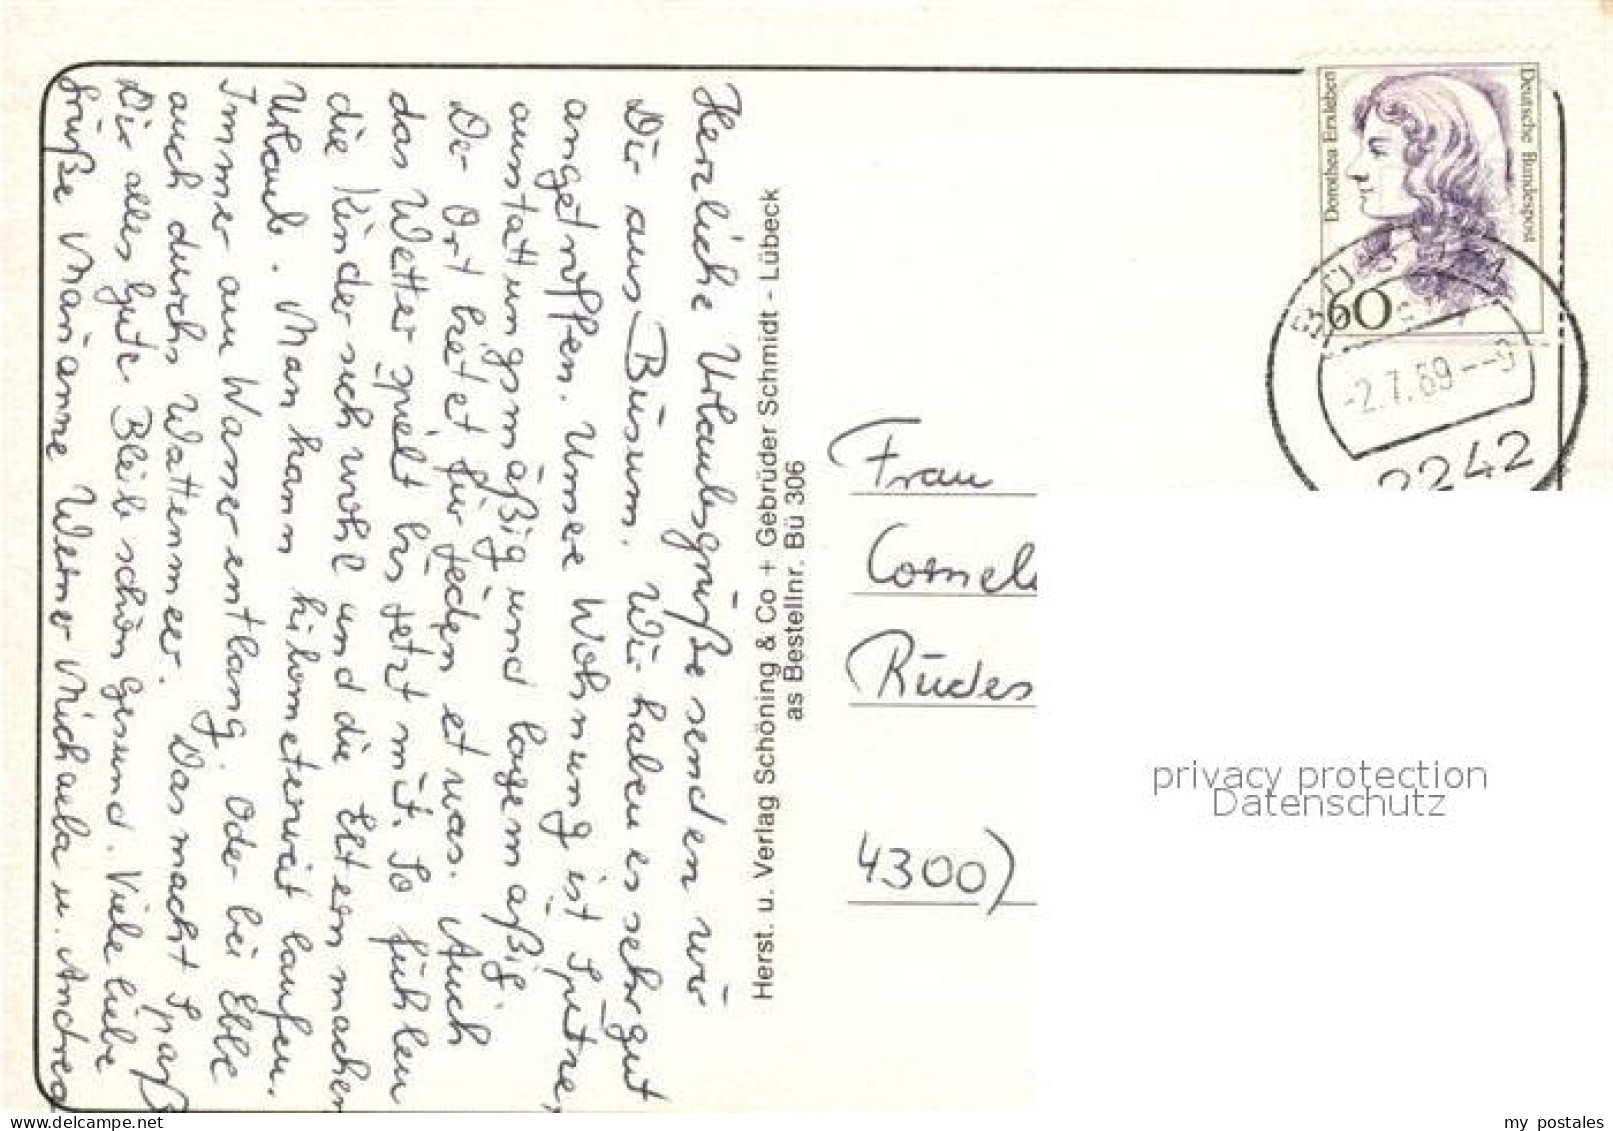 Herzliche Urlaubsgrüße senden wir
Dir aus Büsum. Wir haben es sehr gut
angetroffen. Unsere Wohnung ist Spitze,
ausstattungsmäßig und lagemäßig.
Der Ort bietet für jeden etwas. Auch
das Wetter spielt bis jetzt mit. So fühlen
die Kinder sich wohl und die Eltern machen
Urlaub. Man kann kilometerweit laufen.
Immer am Wasser entlang. Oder bei Ebbe
auch durchs Wattenmeer. Das macht Spaß
Dir alles Gute. Bleib schön gesund. Viele liebe
Grüße Marianne Werner Michaela u. Andrea
Herst. u. Verlag Schöning & Co + Gebrüder Schmidt - Lübeck
as Bestellnr. Bü 306
Dorothea Erxleben
Deutsche Bundespost
60
-2.7.89--9
2242
Frau
Cornel
Rüdes
4300)
privacy protection
Datenschutz
www.delcampe.net
my_postales